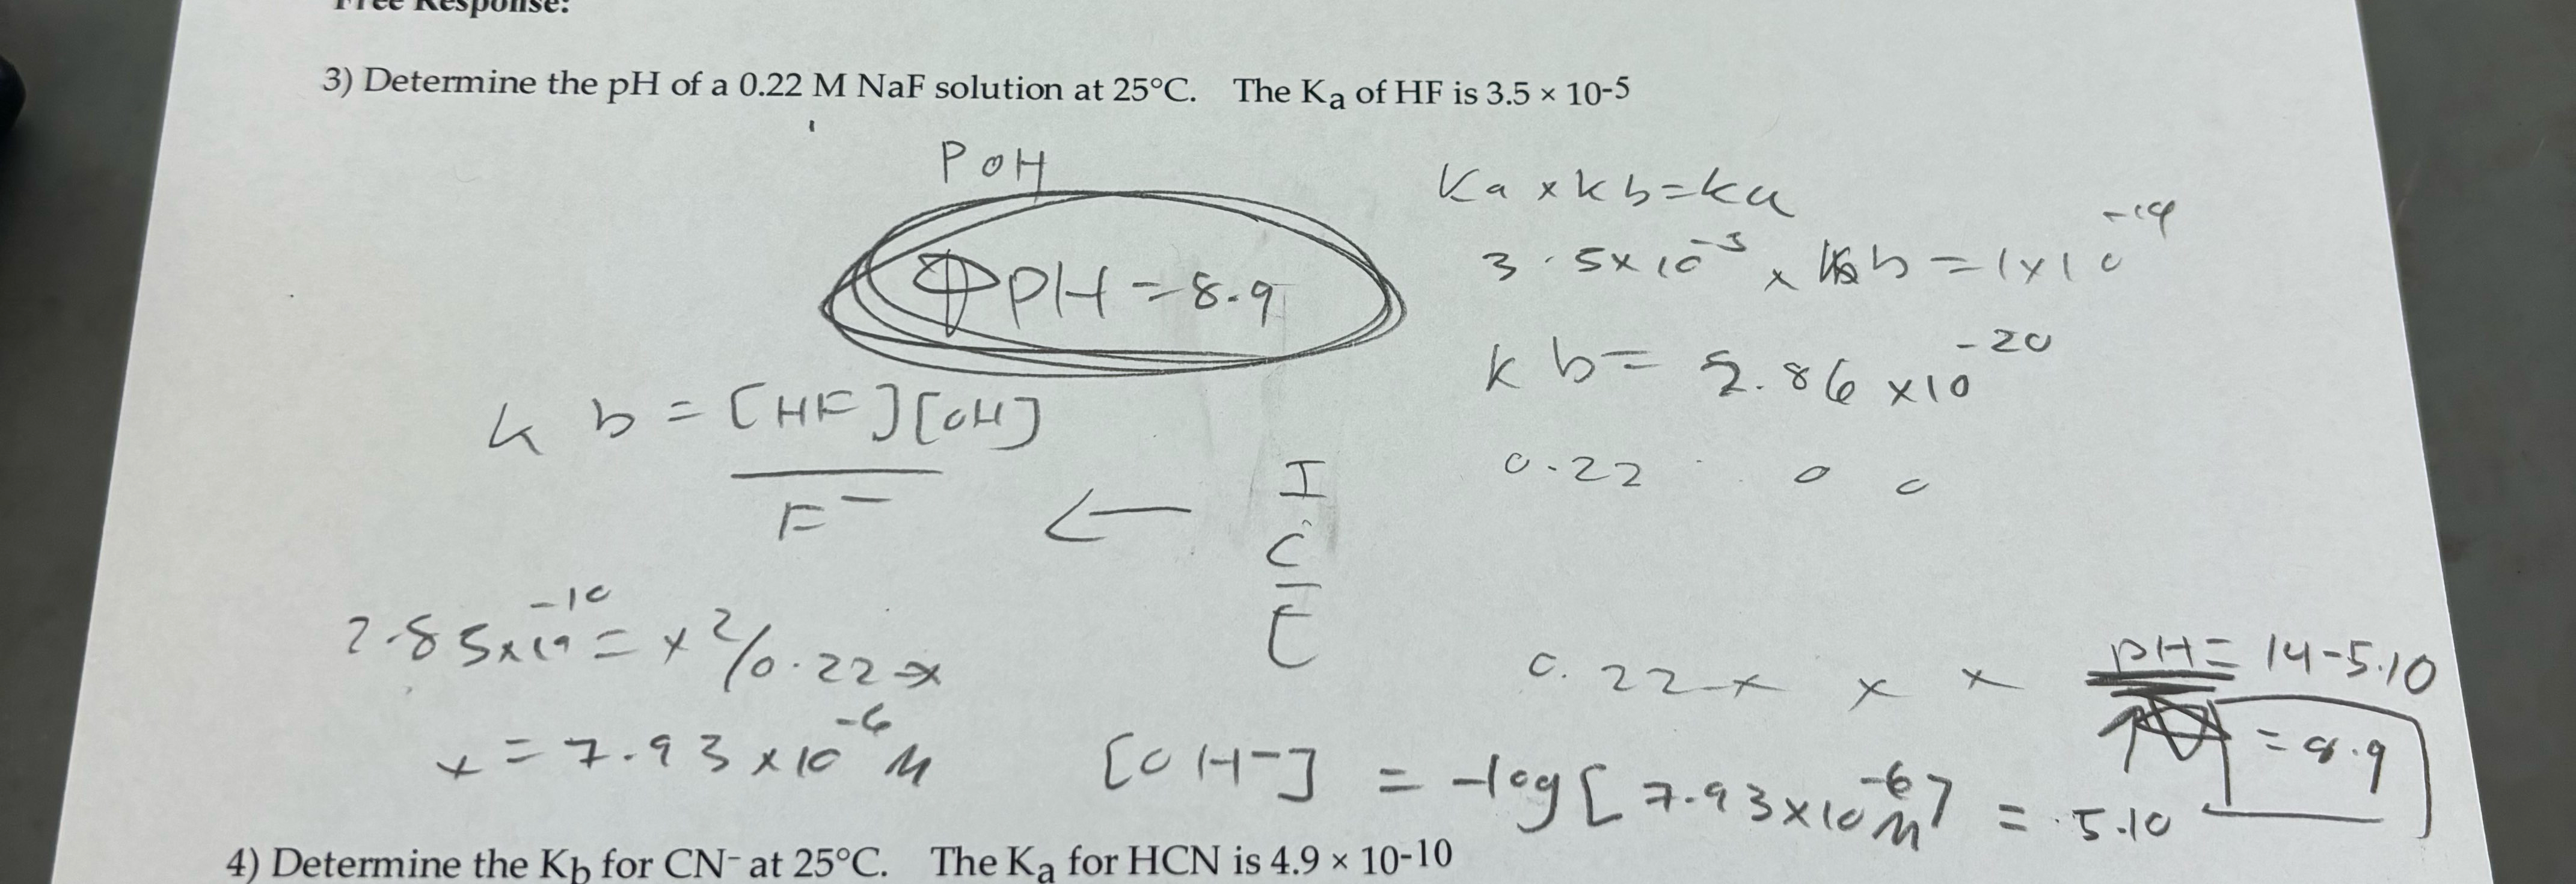 Free Response:
3) Determine the pH of a 0.22 M NaF solution at 25°C. The Ka of HF is 3.5 × 10-5
POH
pH = 8.9
Ka x kb = ku
3.5x10^-5 x kb = 1x10^-14
kb = 2.86 x10^-20
kb = [HF][OH]
F^-
←
I
C
E
0.22 0 0
0.22-x x x
2.85x10^-10 = x^2/0.22-x
x = 7.93 x10^-6 M
[OH-] = -log[7.93x10^-6 M] = 5.10
pH = 14-5.10
= 8.9
4) Determine the Kb for CN- at 25°C. The Ka for HCN is 4.9 × 10-10